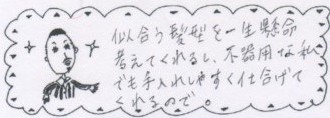 似合う髪型を一生懸命
考えてくれるし、不器用な私
でも手入れしやすく仕上げて
くれるので。